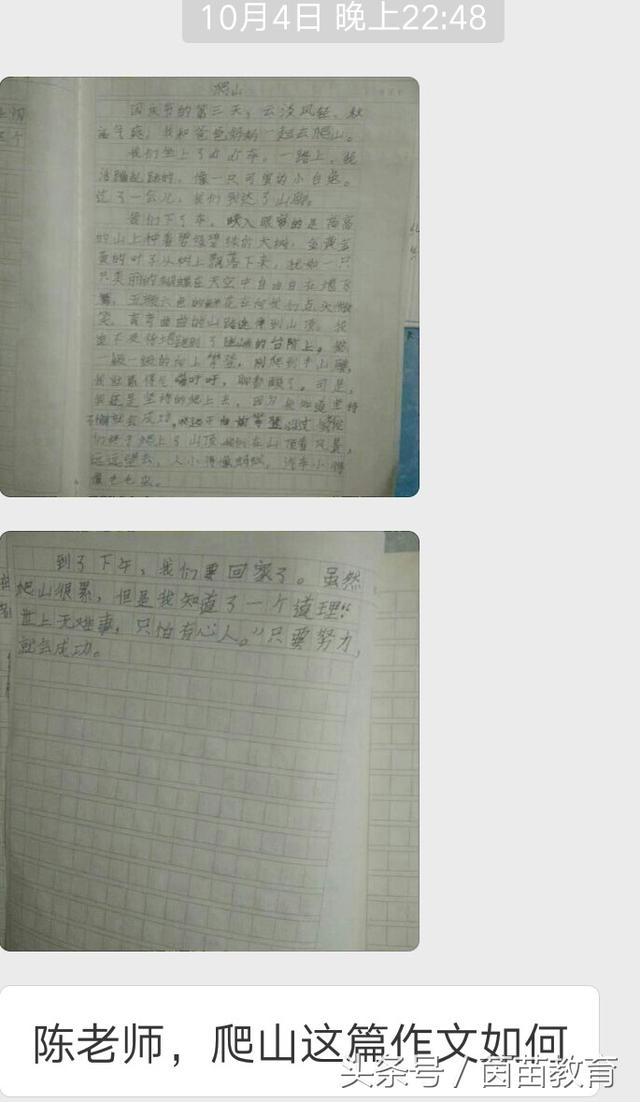 10月4日 晚上22:48
爬山
国庆节的第三天，云淡风轻，秋
高气爽，我和爸爸妈妈一起去爬山。
我们坐上了 车，一路上，我
活蹦乱跳的，像一只可爱的小白兔。
过了一会儿，我们到达了山脚。
我们下了车，映入眼帘的是高高
的山上种着碧绿碧绿的大树，金黄金
黄的叶子从树上飘落下来，犹如一只
只美丽的蝴蝶在天空中自由自在地飞
五颜六色的鲜花在向我们点头微
笑，弯弯曲曲的山路 到山顶。我
迫不及待地跑到了 的台阶上。
一级一级的向上攀登，刚爬到半山腰，
我就累得气喘吁吁，脚都酸了。可是，
我还是坚持的爬上去，因为我知道坚持
就会成功。
们终于爬上了山顶 在山顶看风景，
远远望去，人小得像蚂蚁，汽车小得
像七七虫。
到了下午，我们要回家了。虽然
爬山很累，但是我知道了一个道理：“
世上无难事，只怕有心人。”只要努力，
就会成功。
陈老师，爬山这篇作文如何
头条号 / 茵苗教育